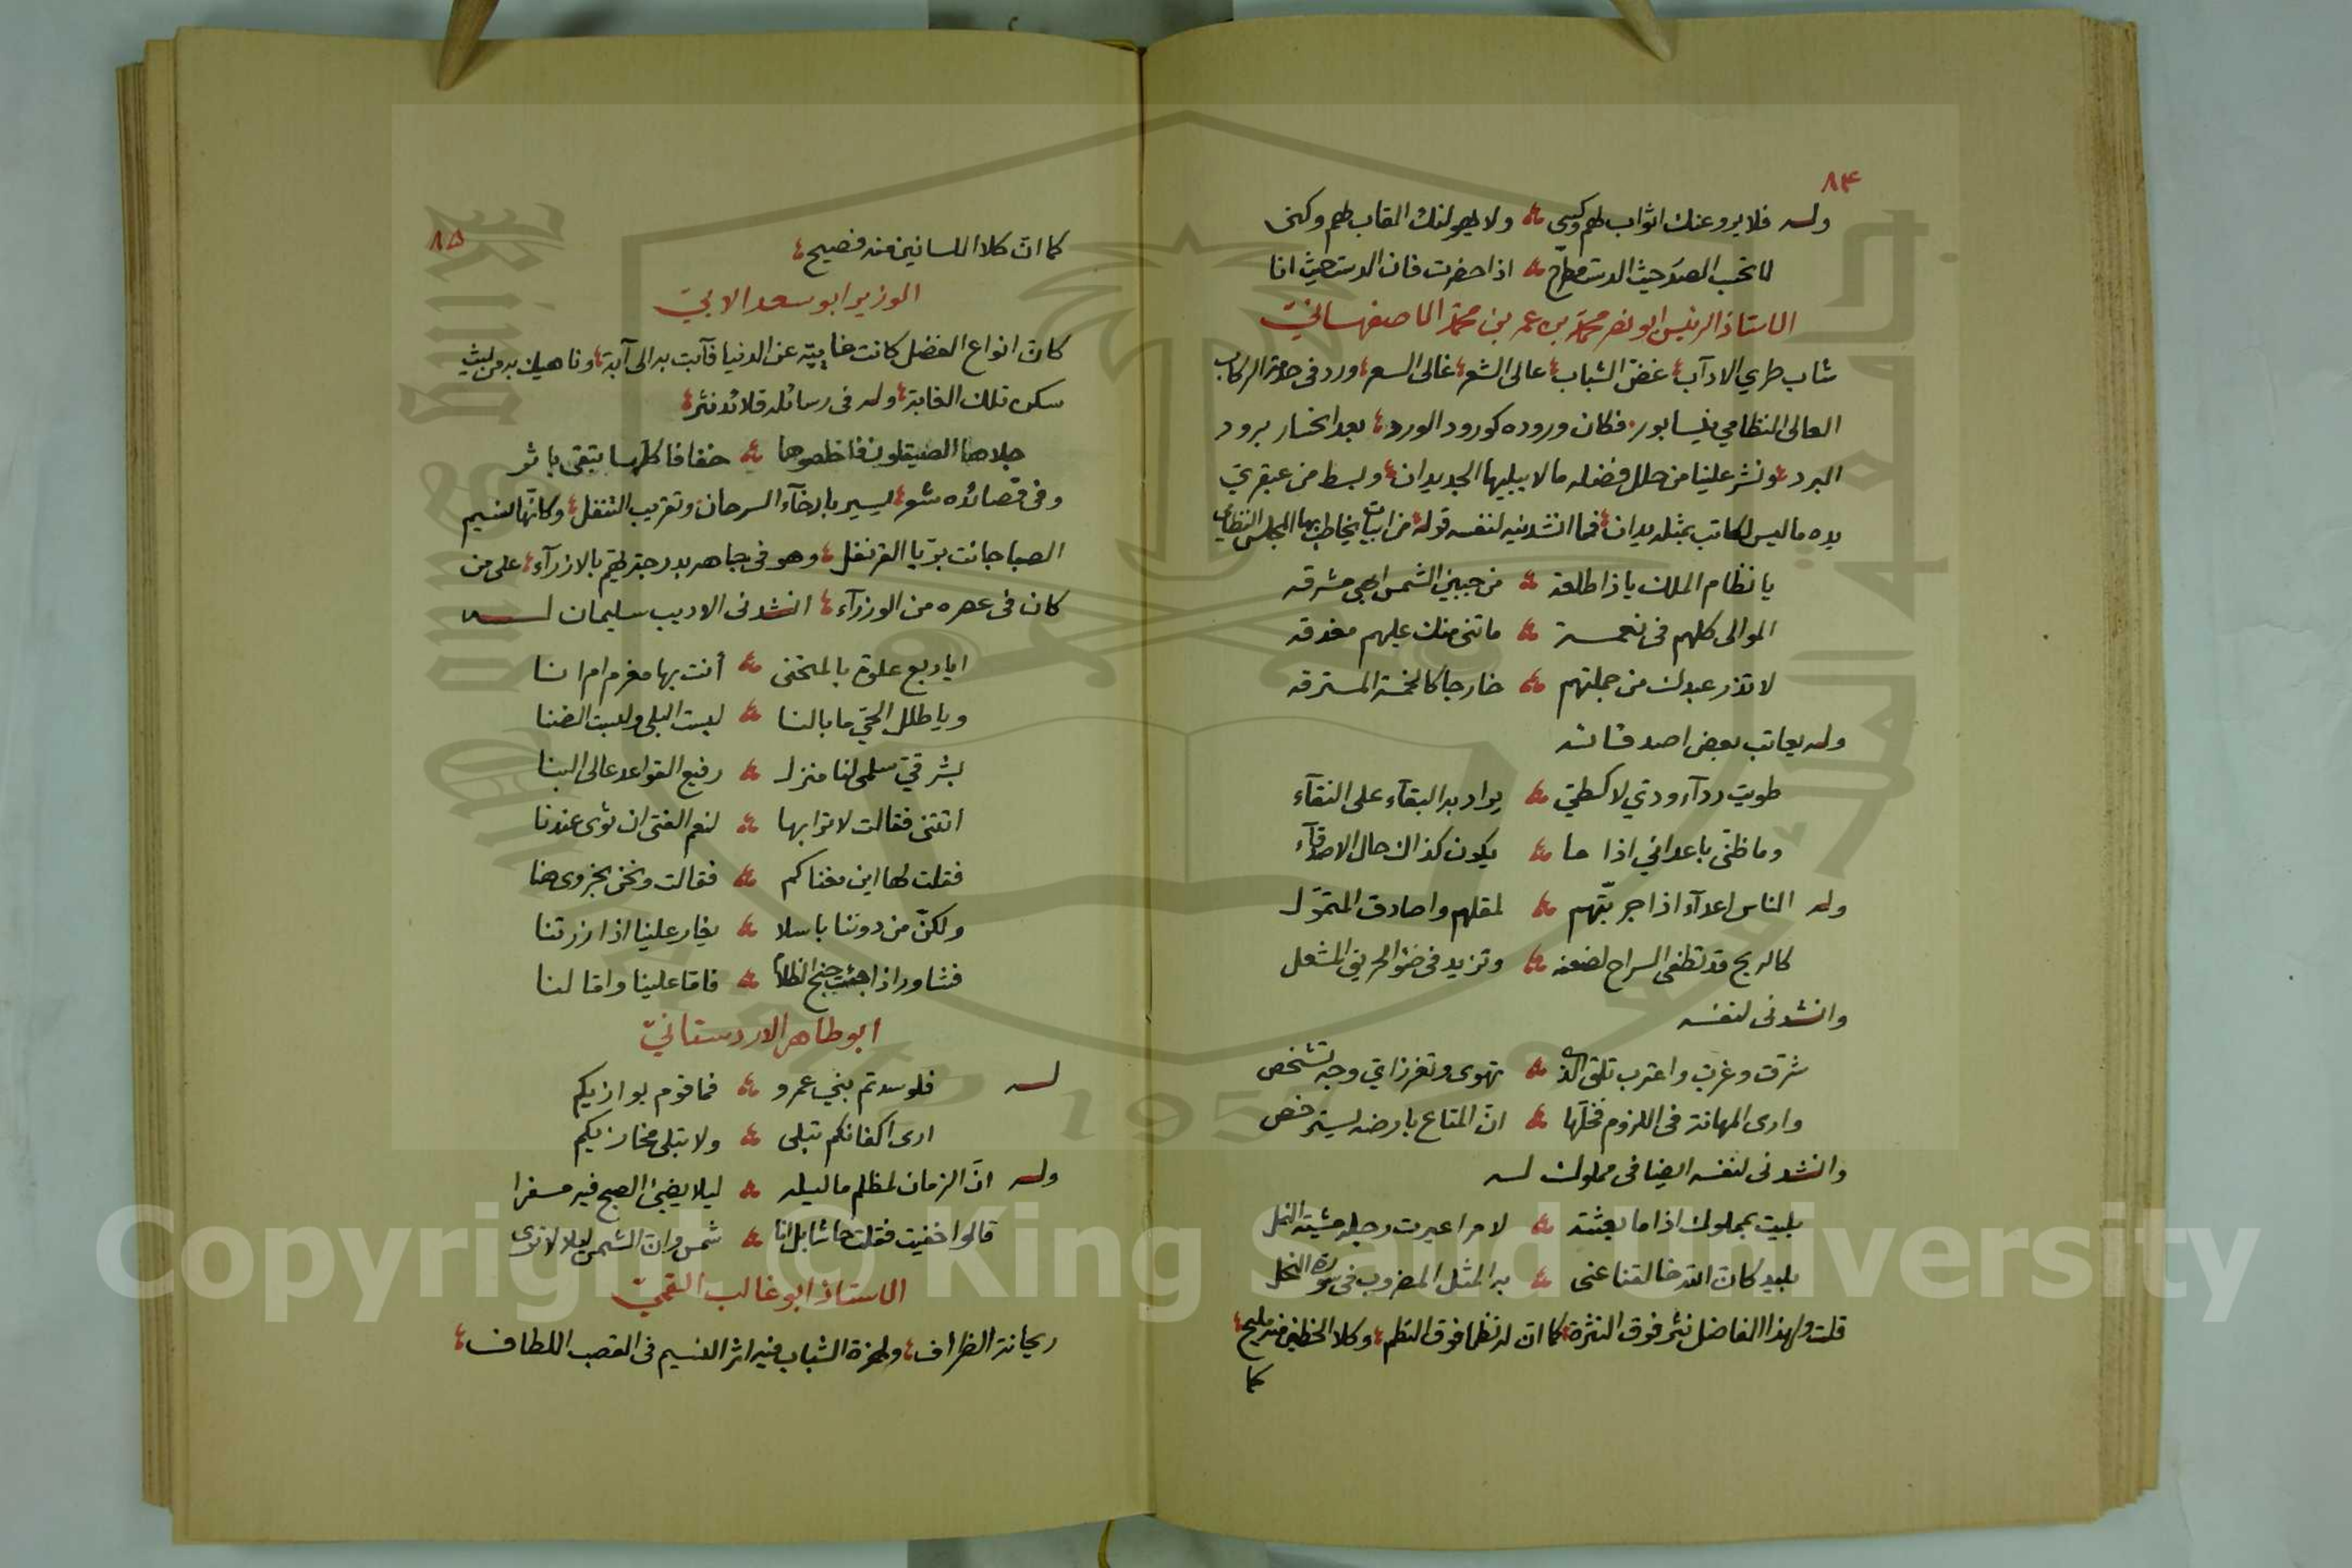 ٨٤
وله فلا يروعنك اثواب لهم وكسى ولا يهولنك القاب لهم وكنى
لا تحسب الصدر حيث الدست مطرح اذا حضرت فان الدست حيث انا
الاستاذ الرئيس ابو نصر محمد بن عمر بن محمد الاصفهانيّ
شاب طري الادآب غض الشباب عالى الشعر غالى السعر ورد فى خدمة الركاب
العالى النظامي نيسابور فكان وروده كورود الورد بعد انحسار برود
البرد ونشر علينا من حلل فضله ما لا يبليها الجديدان وبسط من عبقريّ
يده ما ليس لكاتب بمثله يدان فما انشدنيه لنفسه قوله من ابيات يخاطب بها المجلس النظامى
يا نظام الملك ياذا طلعة من جبين الشمس ابهى مشرقه
الموالى كلهم فى نعمة ما تنى منك عليهم مغدقه
لا تذر عبدك من جملتهم خارجا كالخمسة المسترقه
وله يعاتب بعض اصدقائه
طويت ردآء ودي لا كطيّ يراد به البقآء على النقآء
وما ظنى باعدائي اذا ما يكون كذاك حال الاصدقآء
وله الناس اعدآء اذا جربّتهم لمقلهم واصادق المتموّل
كالريح قد تطفى السراج لضعفه وتزيد فى ضوء الحريق المشعل
وانشدنى لنفسه
شرقت وغرب واغترب تلقى الذى تهوى وتغرز اي وجه تشخص
وارى المهانة فى اللزوم فخلّها انّ المتاع بارضه يسترخص
وانشدنى لنفسه ايضا فى مملوك له
بليت بمملوك اذا ما بعثته لامر اعيرت رجله مشية النمل
بليد كانّ الله خالقنا عنى به المثل المضروب فى سورة النحل
قلت ولهذا الفاضل نثر فوق النثرة كما انّ له نظما فوق النظم وكلا الخطين منه مليح
كما
٨٥
كما انّ كلا اللسانين منه فصيح
الوزير ابو سعد الابيّ
كانّ انواع الفضل كانت غايبة عن الدنيا فآبت به الى آبة وناهيك به من ليث
سكن تلك الغابة وله فى رسائله قلائد نثر
جلاها الصيقلون فاخلصوها خفافا كلّها يتقى باثر
وفى قصائده شعر يسير بارخآء السرحان وتقريب التتفل وكانّها نسيم
الصبا جائت بريّا القرنفل وهو فى جاهه بدرجة لهم بالازرآء على من
كان فى عصره من الوزرآء انشدنى الاديب سليمان له
ايا ربع علوة بالمنحنى أنت بها مغرم ام انا
ويا طلل الحيّ ما بالنا لبست البلى ولبست الضنا
بشرقيّ سلمى لنا منزل رفيع القواعد عالى البنا
اتتنى فقالت لاترابها لنعم الفتى ان ثوى عندنا
فقلت لها اين مغناكم فقالت ونحن بحزوى هنا
ولكنّ من دوننا باسلا يغار علينا اذا زرتنا
فشاور اذا جئت جنح الظلام فاما علينا واما لنا
ابو طاهر الاردستانيّ
له فلو سدتم بني عمرو فما قوم يوازيكم
ارى اكفانكم تبلى ولا تبلى مخازيكم
وله انّ الزمان لمظلم ما ليله ليلا يضيئ الصبح فيه مسفرا
قالوا خفيت فقلت حاشا بل انا شمس وانّ الشمس ليلا لا ترى
الاستاذ ابو غالب القميّ
ريحانة الظراف ولهزة الشباب فيه اثر النسيم فى القصب اللطاف
Copyright © King Saud University
1957